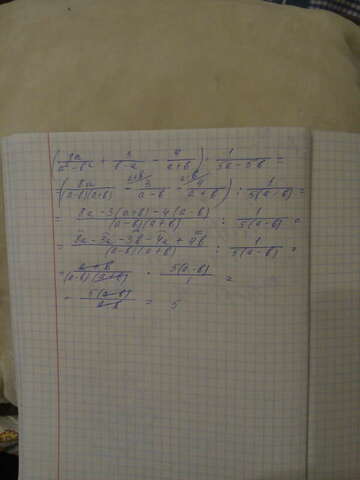 (8a/(a²-b²) + 3/(b-a) - 4/(a+b)) : 1/(5a-5b) =
= (8a/((a-b)(a+b)) - 3/(a-b) - 4/(a+b)) : 1/(5(a-b)) =
= (8a-3(a+b)-4(a-b))/((a-b)(a+b)) : 1/(5(a-b)) =
= (8a-3a-3b-4a+4b)/((a-b)(a+b)) : 1/(5(a-b)) =
= (a+b)/((a-b)(a+b)) · 5(a-b)/1 =
= 5(a-b)/(a-b) = 5